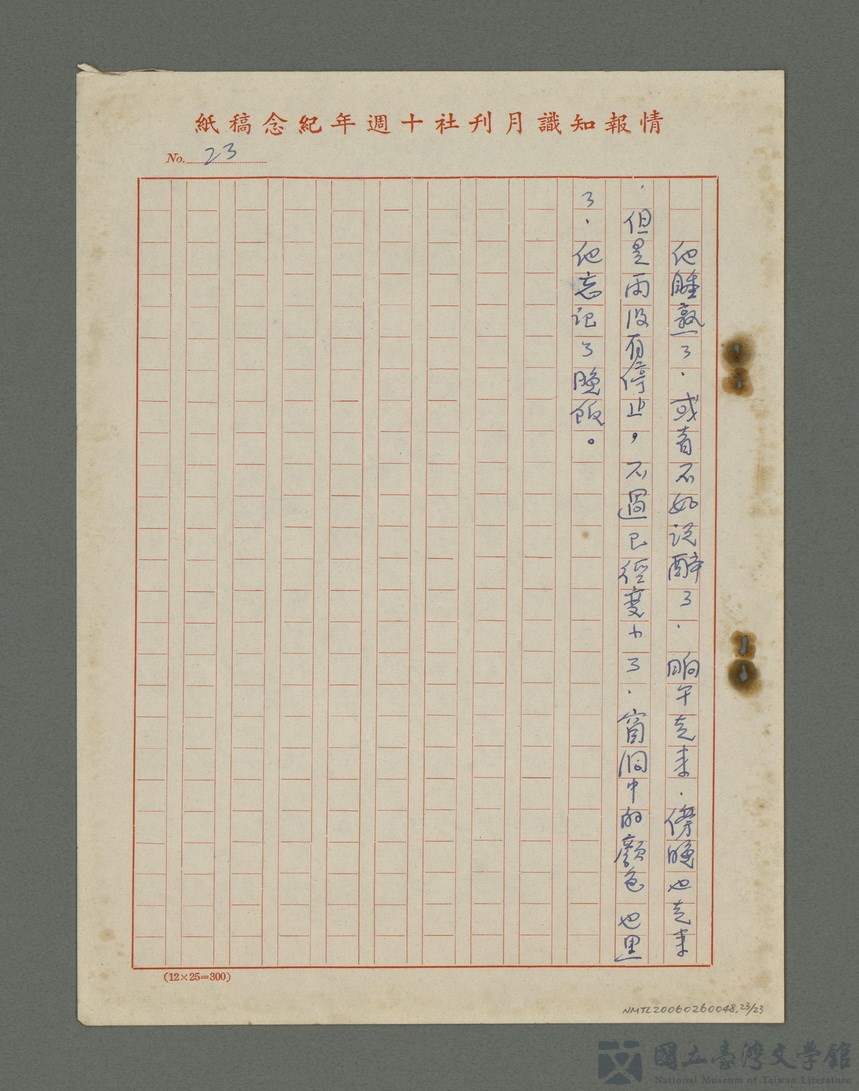 情報知識月刊社十週年紀念稿紙
No. 23
他睡熟了．或者不如說醉了．晌午走來．傍晚也走來
．但是雨没有停止，不過已經變小了．窗洞中的顏色也黑
了．他忘記了晚飯。
(12×25=300)
NMTL20060260048.23/23
國立臺灣文學館
National Museum of Taiwan Literature